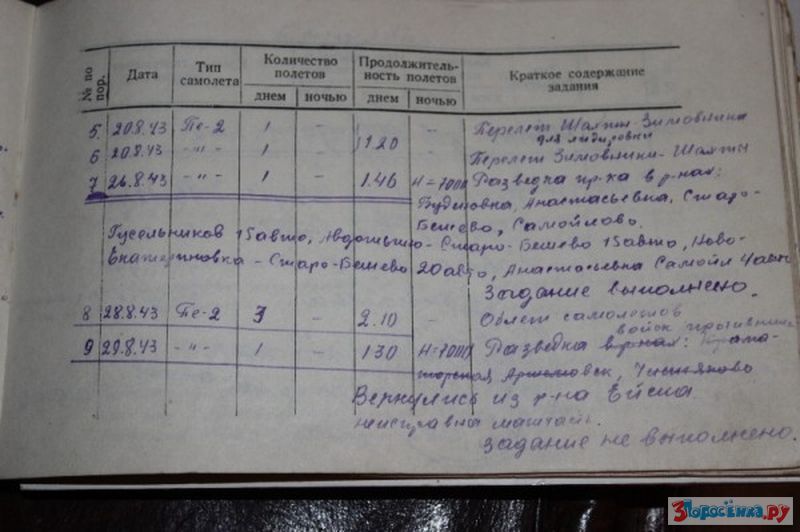 № по пор. Дата Тип самолета Количество полетов Продолжительность полетов Краткое содержание задания
днем ночью днем ночью
5 20.8.43 Пе-2 1 – – Перелет Шахты-Зимовники
для лидировки
6 20.8.43 -"- 1 – 1.20 – Перелет Зимовники-Шахты
7 26.8.43 -"- 1 – 1.46 Н=7000 Разведка пр-ка в р-нах:
Анастасьевка, Старо-
Бешево, Самойлово.
Гусельников 15 авто, – Старо-Бешево 15 авто, Ново-
Екатериновка – Старо-Бешево 20 авто, Анастасьевка Самойл 4 авт
Задание выполнено.
8 28.8.43 Пе-2 3 – 2.10 – Облет самолетов
войск противника
9 29.8.43 -"- 1 – 1.30 Н=7000 Разведка в р-нах: Крама-
торская, Артемовск, Чистяково
Вернулись из р-на Ейска
неисправна
Задание не выполнено.
3Поросёнка.ру